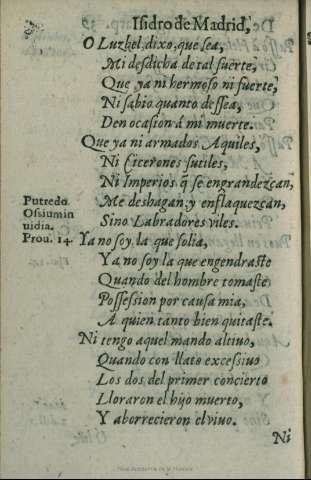 Isidro de Madrid,
O Luzbel, dixo, que sea,
Mi desdicha de tal suerte,
Que ya ni hermoso ni fuerte,
Ni sabio quanto dessea,
Den ocasion á mi muerte.
Que ya ni armados Aquiles,
Ni Cicerones sutiles,
Ni Imperios q̃ se engrandezcan,
Me deshagan, y enflaquezcan,
Sino Labradores viles.
Putredo
Ossium in
uidia.
Prou. 14.
Ya no soy la que solia,
Ya no soy la que engendraste
Quando del hombre tomaste
Possession por causa mia,
A quien tanto bien quitaste.
Ni tengo aquel mando altiuo,
Quando con llãto excessiuo
Los dos del primer concierto
Lloraron el hijo muerto,
Y aborrecieron el viuo.
Ni